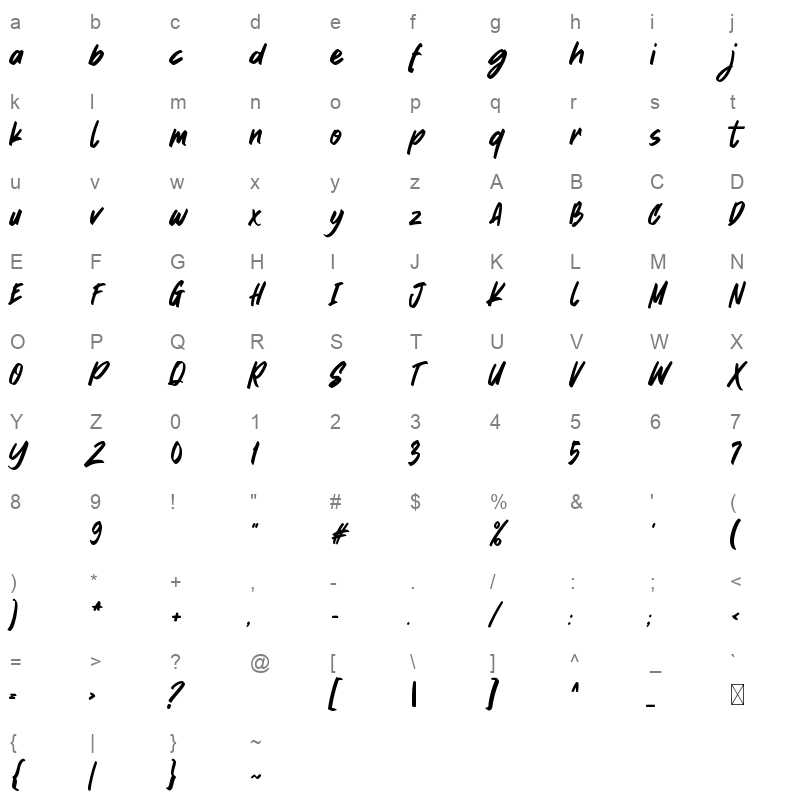 a b c d e f g h i j
a b c d e f g h i j
k l m n o p q r s t
k l m n o p q r s t
u v w x y z A B C D
u v w x y z A B C D
E F G H I J K L M N
E F G H I J K L M N
O P Q R S T U V W X
O P Q R S T U V W X
Y Z 0 1 2 3 4 5 6 7
Y Z 0 1 3 5 7
8 9 ! " # $ % & ' (
9 " # % ' (
) * + , - . / : ; <
) * + , - . / : ; <
= > ? @ [ \ ] ^ _ `
= > ? [ \ ] ^ _
{ | } ~
{ | } ~